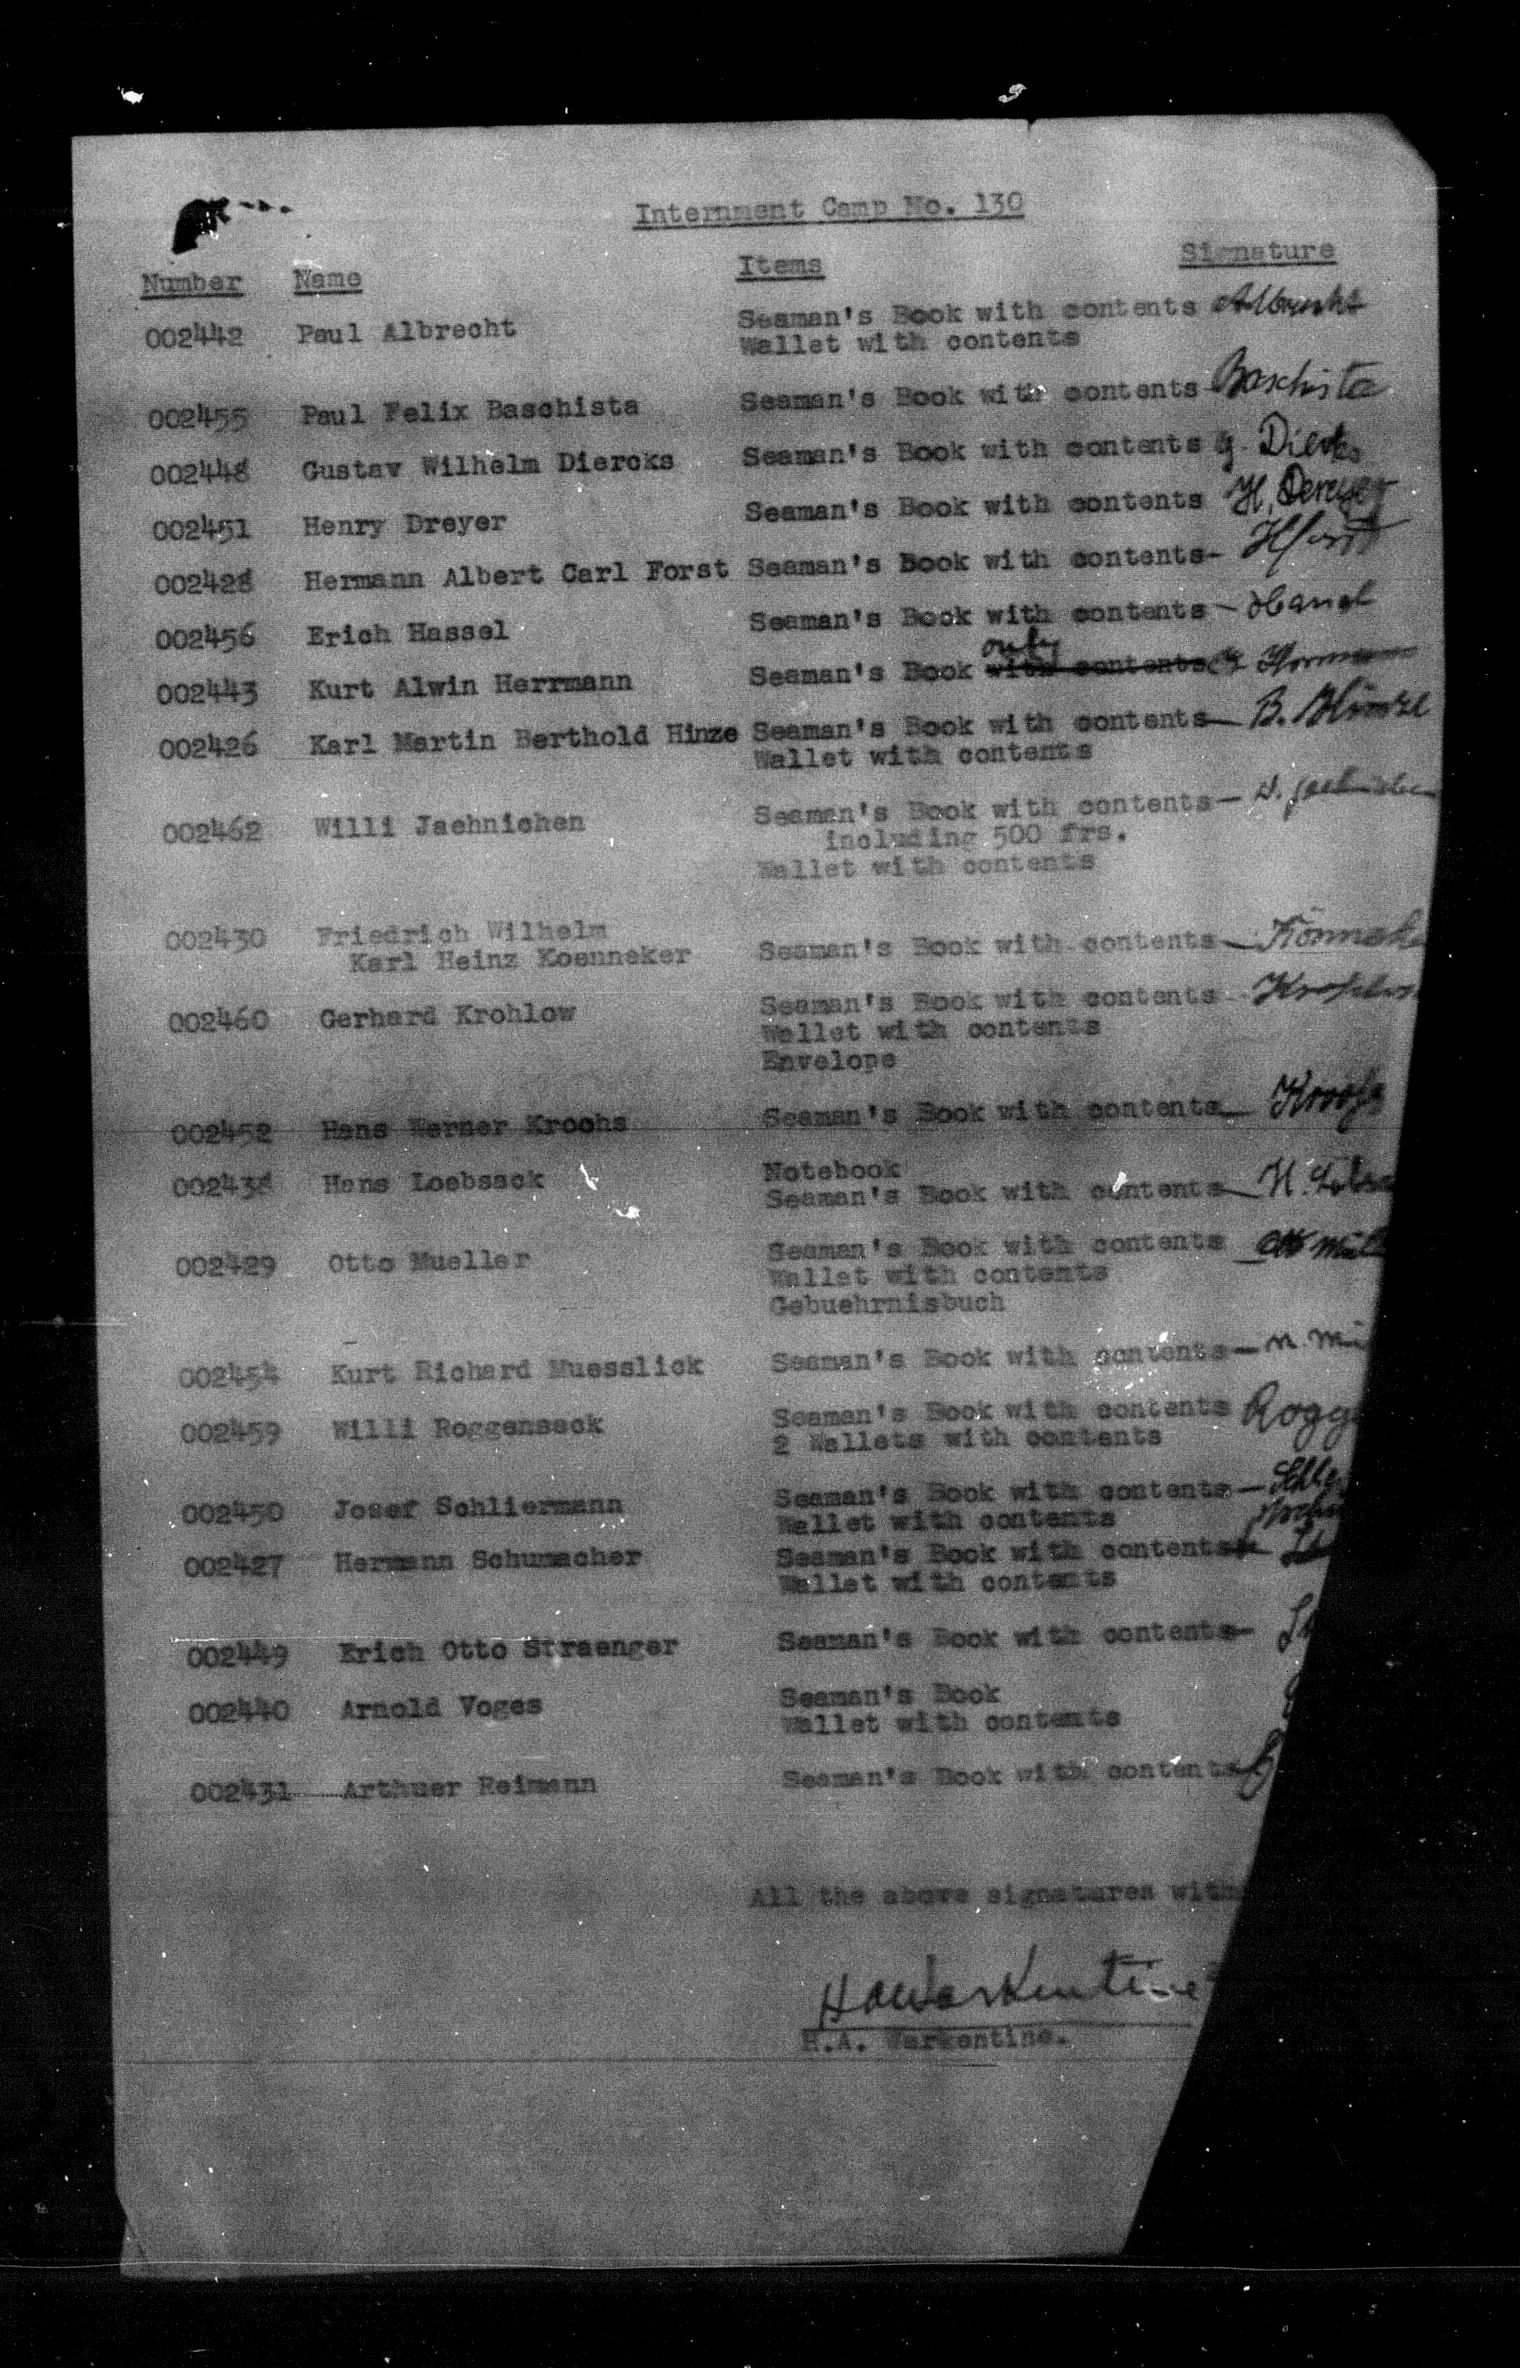 Internment Camp No. 130
Number Name Items Signature
002442 Paul Albrecht Seaman's Book with contents Albrecht
Wallet with contents
002455 Paul Felix Baschista Seaman's Book with contents - Baschista
002448 Gustav Wilhelm Diercks Seaman's Book with contents G. Diercks
002451 Henry Dreyer Seaman's Book with contents H. Dreyer
002428 Hermann Albert Carl Forst Seaman's Book with contents- H Forst
002456 Erich Hassel Seaman's Book with contents - Hassel
only
002443 Kurt Alwin Herrmann Seaman's Book with contents K Herrmann
002426 Karl Martin Berthold Hinze Seaman's Book with contents- B. Hinze
Wallet with contents
002462 Willi Jaehnichen Seaman's Book with contents- W. Jaehnichen
including 500 frs.
Wallet with contents
002430 Friedrich Wilhelm
Karl Heinz Koenneker Seaman's Book with contents- Könneke
002460 Gerhard Krohlow Seaman's Book with contents - Krohlow
Wallet with contents
Envelope
002452 Hans Werner Kroohs Seaman's Book with contents- Kroohs
Notebook
002438 Hans Loebsack Seaman's Book with contents-
002429 Otto Mueller Seaman's Book with contents Otto Müll
Wallet with contents
Gebuehrnisbuch
002454 Kurt Richard Muesslick Seaman's Book with contents-
002459 Willi Roggensack Seaman's Book with contents Rogge
2 Wallets with contents
002450 Josef Schliermann Seaman's Book with contents-
Wallet with contents
002427 Hermann Schumacher Seaman's Book with contents
Wallet with contents
002449 Erich Otto Straenger Seaman's Book with contents- St
002440 Arnold Voges Seaman's Book
Wallet with contents
002431 Arthuer Reimann Seaman's Book with contents
All the above signatures witn
HAWarkentine
H.A. Warkentine.